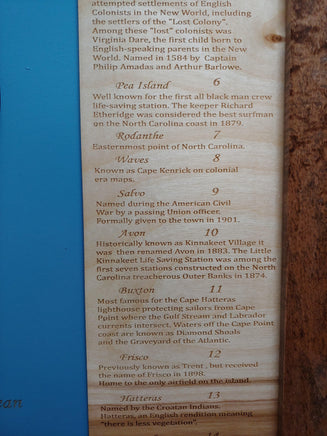 attempted settlements of English
Colonists in the New World, including
the settlers of the "Lost Colony".
Among these "lost" colonists was
Virginia Dare, the first child born to
English-speaking parents in the New
World. Named in 1584 by Captain
Philip Amadas and Arthur Barlowe.
Pea Island 6
Well known for the first all black man crew
life-saving station. The keeper Richard
Etheridge was considered the best surfman
on the North Carolina coast in 1879.
Rodanthe 7
Easternmost point of North Carolina.
Waves 8
Known as Cape Kenrick on colonial
era maps.
Salvo 9
Named during the American Civil
War by a passing Union officer.
Formally given to the town in 1901.
Avon 10
Historically known as Kinnakeet Village it
was then renamed Avon in 1883. The Little
Kinnakeet Life Saving Station was among the
first seven stations constructed on the North
Carolina treacherous Outer Banks in 1874.
Buxton 11
Most famous for the Cape Hatteras
lighthouse protecting sailors from Cape
Point where the Gulf Stream and Labrador
currents intersect. Waters off the Cape Point
coast are known as Diamond Shoals
and the Graveyard of the Atlantic.
Frisco 12
Previously known as Trent , but received
the name of Frisco in 1898.
Home to the only airfield on the island.
Hatteras 13
Named by the Croatan Indians.
Hatteras, an English rendition meaning
"there is less vegetation".